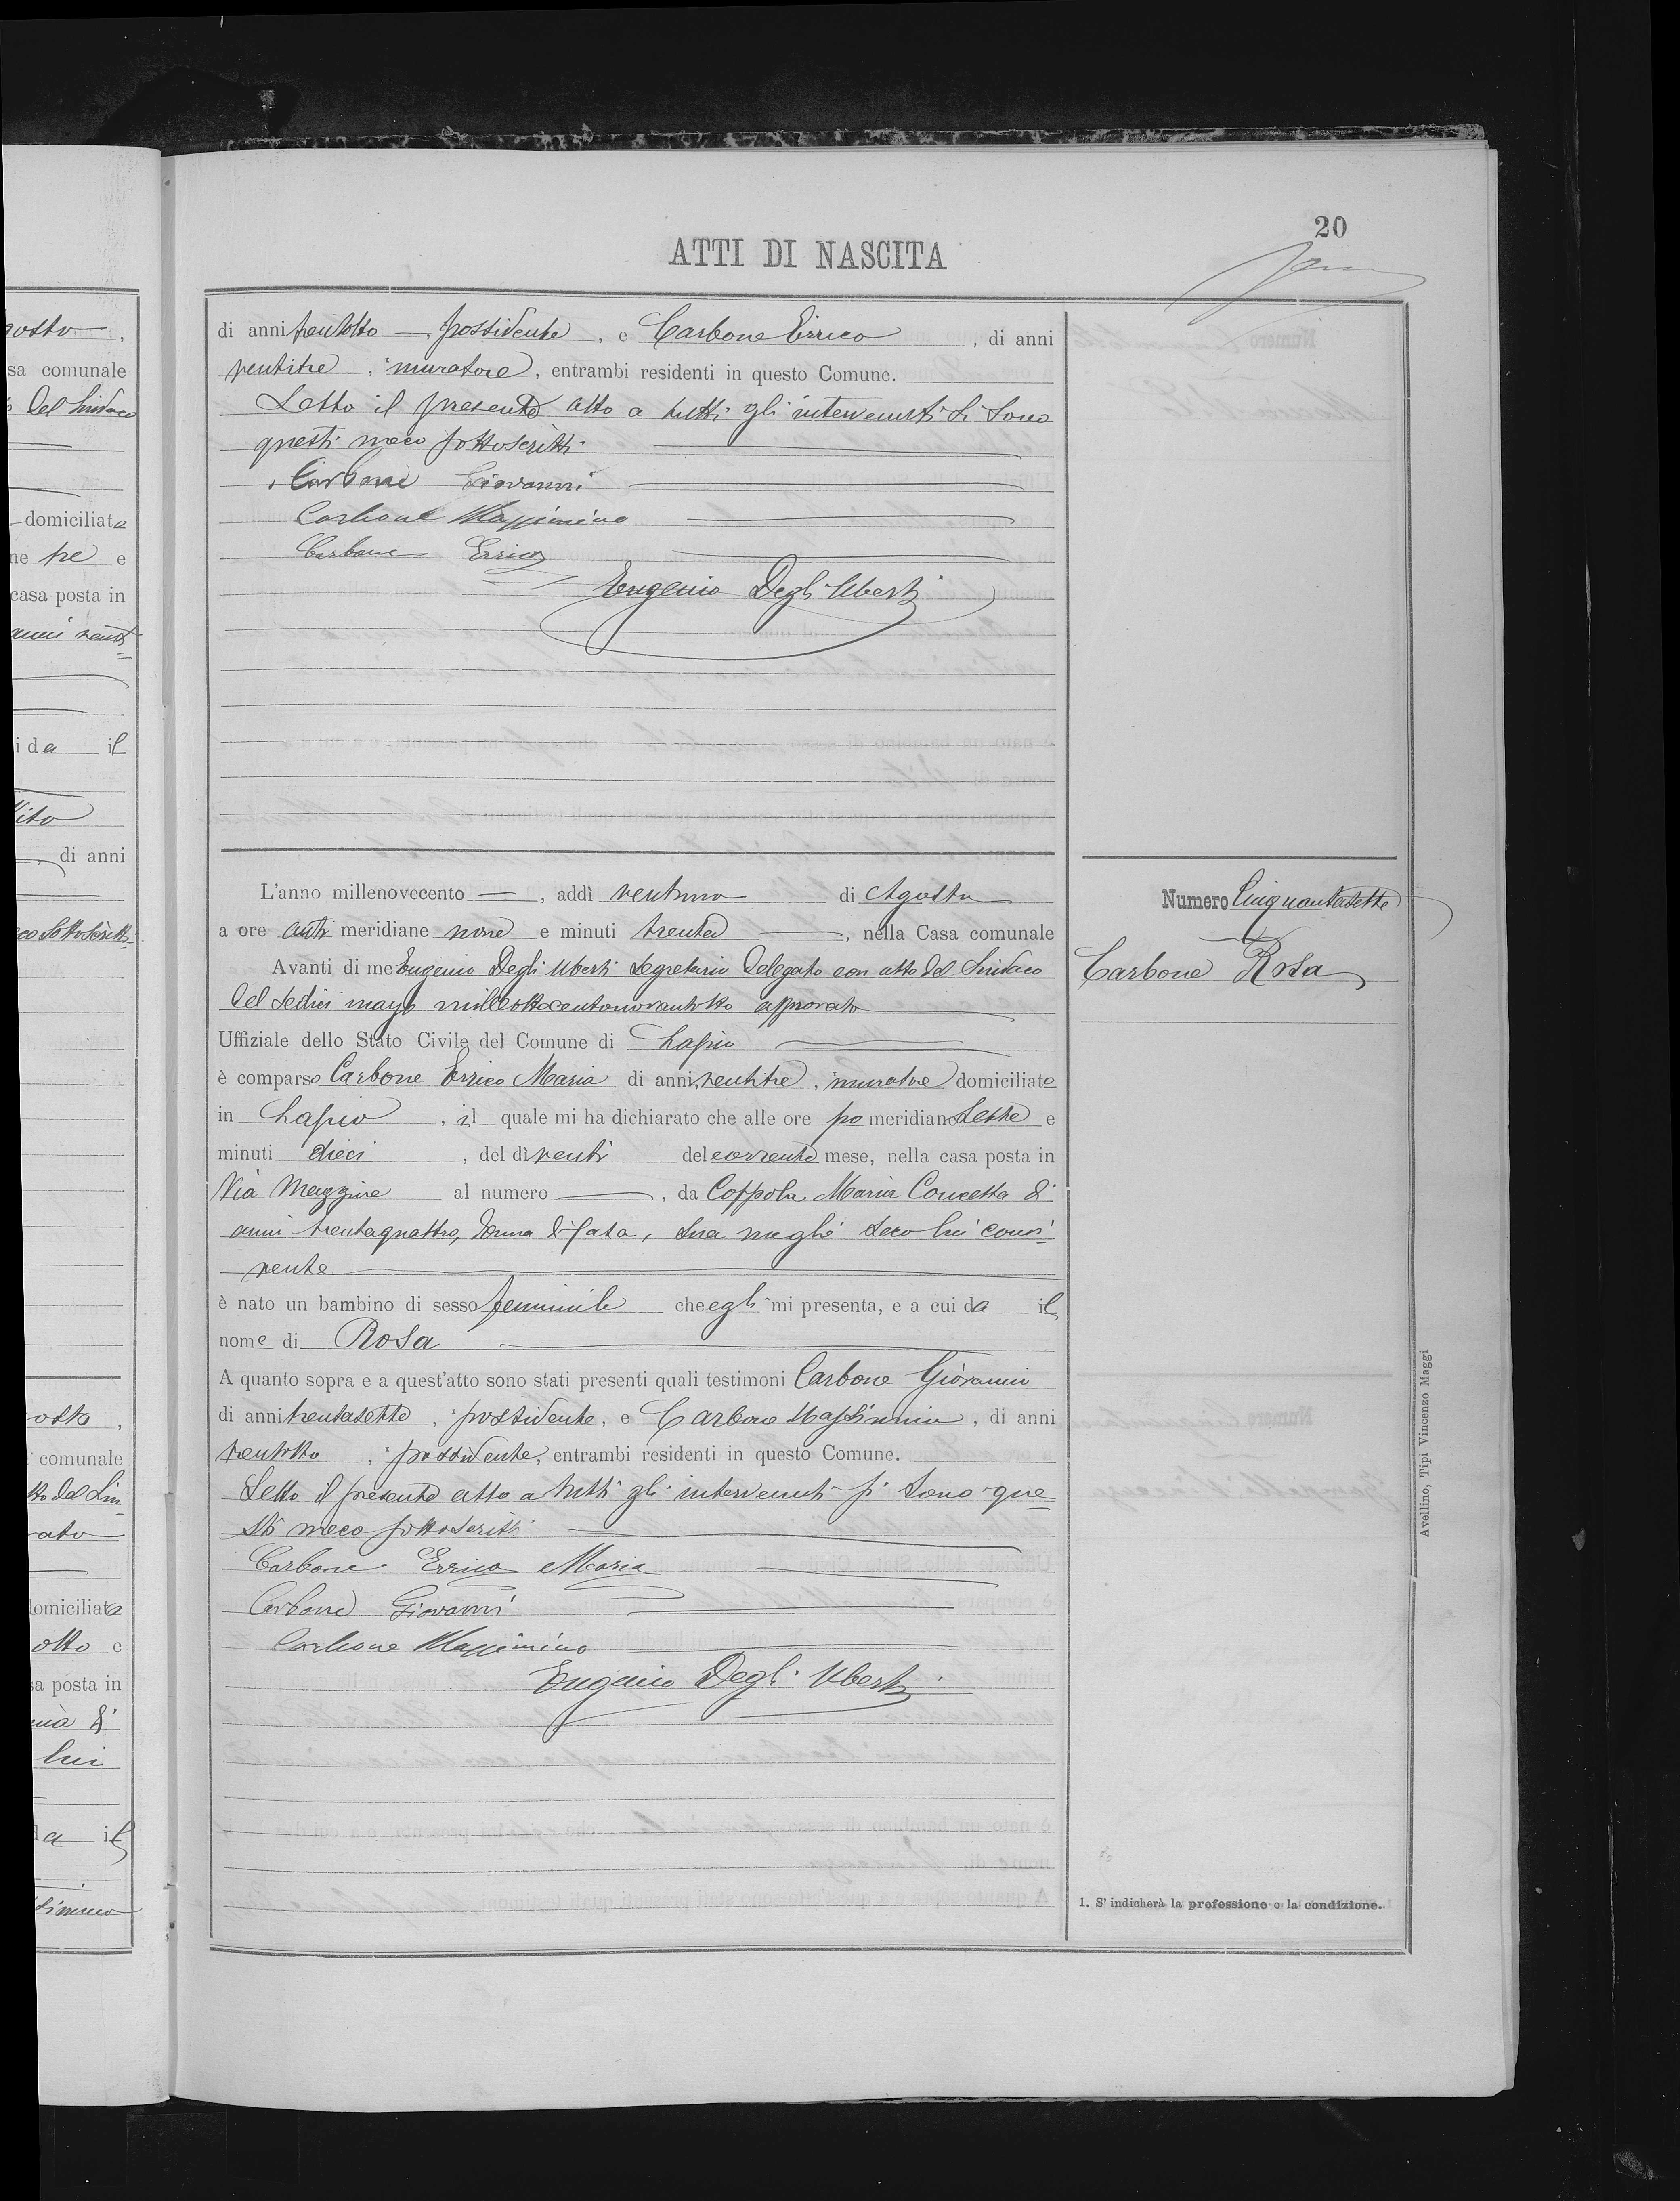 20
ATTI DI NASCITA
di anni ventotto — , possidente , e Carbone Errico , di anni
ventitre , muratore , entrambi residenti in questo Comune.
Letto il presente atto a tutti gli intervenuti si sono
questi meco sottoscritti
Carbone Giovanni
Carbone Massimino
Carbone Errico
Eugenio Degli Uberti
L'anno millenovecento — , addì ventuno di Agosto
a ore anti meridiane nove e minuti trenta , nella Casa comunale
Avanti di me Eugenio Degli Uberti Segretario Delegato con atto del Sindaco
del sedici maggio milleottocentonovantotto approvato
Uffiziale dello Stato Civile del Comune di Lapio
è comparso Carbone Errico Maria di anni ventitre , muratore domiciliato
in Lapio , il quale mi ha dichiarato che alle ore po meridiane Sette e
minuti dieci , del dì venti del corrente mese, nella casa posta in
Via Maggiore al numero — , da Coppola Maria Concetta di
anni trentaquattro, donna di casa, sua moglie seco lui convi-
vente
è nato un bambino di sesso femminile che egli mi presenta, e a cui da il
nome di Rosa
A quanto sopra e a quest'atto sono stati presenti quali testimoni Carbone Giovanni
di anni trentasette , possidente , e Carbone Massimino , di anni
ventotto , possidente , entrambi residenti in questo Comune.
Letto il presente atto a tutti gli intervenuti si sono que=
sti meco sottoscritti
Carbone Errico Maria
Carbone Giovanni
Carbone Massimino
Eugenio Degli Uberti
Numero Cinquantasette
Carbone Rosa
1. S' indicherà la professione o la condizione.
Avellino, Tipi Vincenzo Maggi
sa comunale
del Sindaco
domiciliata
ne tre e
casa posta in
i da il
Vito
di anni
comunale
domiciliata
otto e
sa posta in
lui
da il